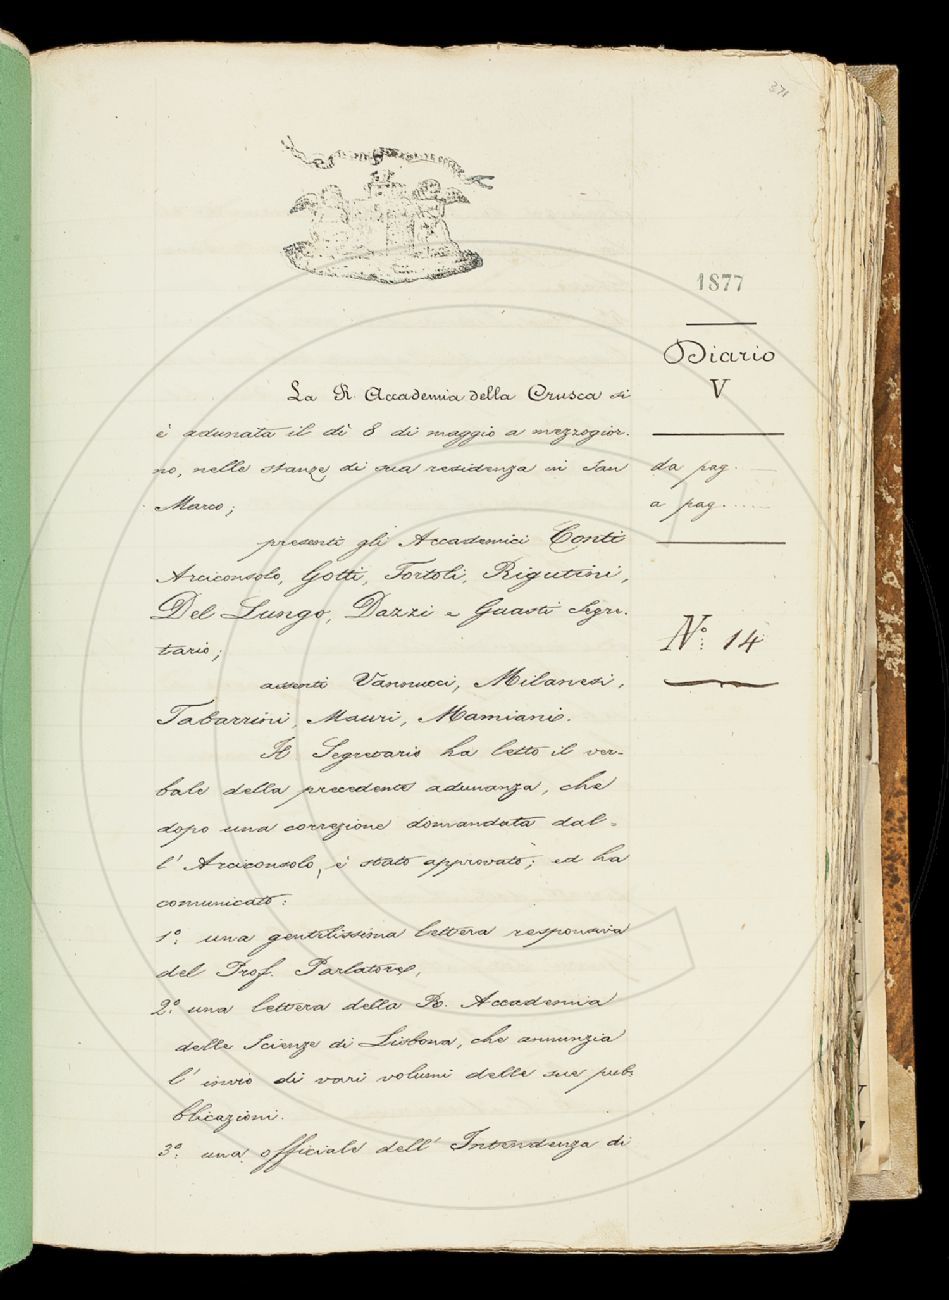 371
1877
Diario
V
da pag.
a pag.
Nº: 14
La R. Accademia della Crusca si
è adunata il dì 8 di maggio a mezzogior-
no, nelle stanze di sua residenza in San
Marco;
presenti gli Accademici Conti
Arciconsolo, Gotti, Tortoli, Rigutini,
Del Lungo, Dazzi e Guasti Segre-
tario;
assenti Vannucci, Milanesi,
Tabarrini, Mauri, Mamiani.
Il Segretario ha letto il ver-
bale della precedente adunanza, che
dopo una correzione domandata dal-
l' Arciconsolo, è stato approvato; ed ha
comunicato:
1º: una gentilissima lettera responsiva
del Prof. Parlatore,
2º: una lettera della R. Accademia
delle Scienze di Lisbona, che annunzia
l' invio di vari volumi delle sue pub-
blicazioni.
3º: una officiale dell' Intendenza di